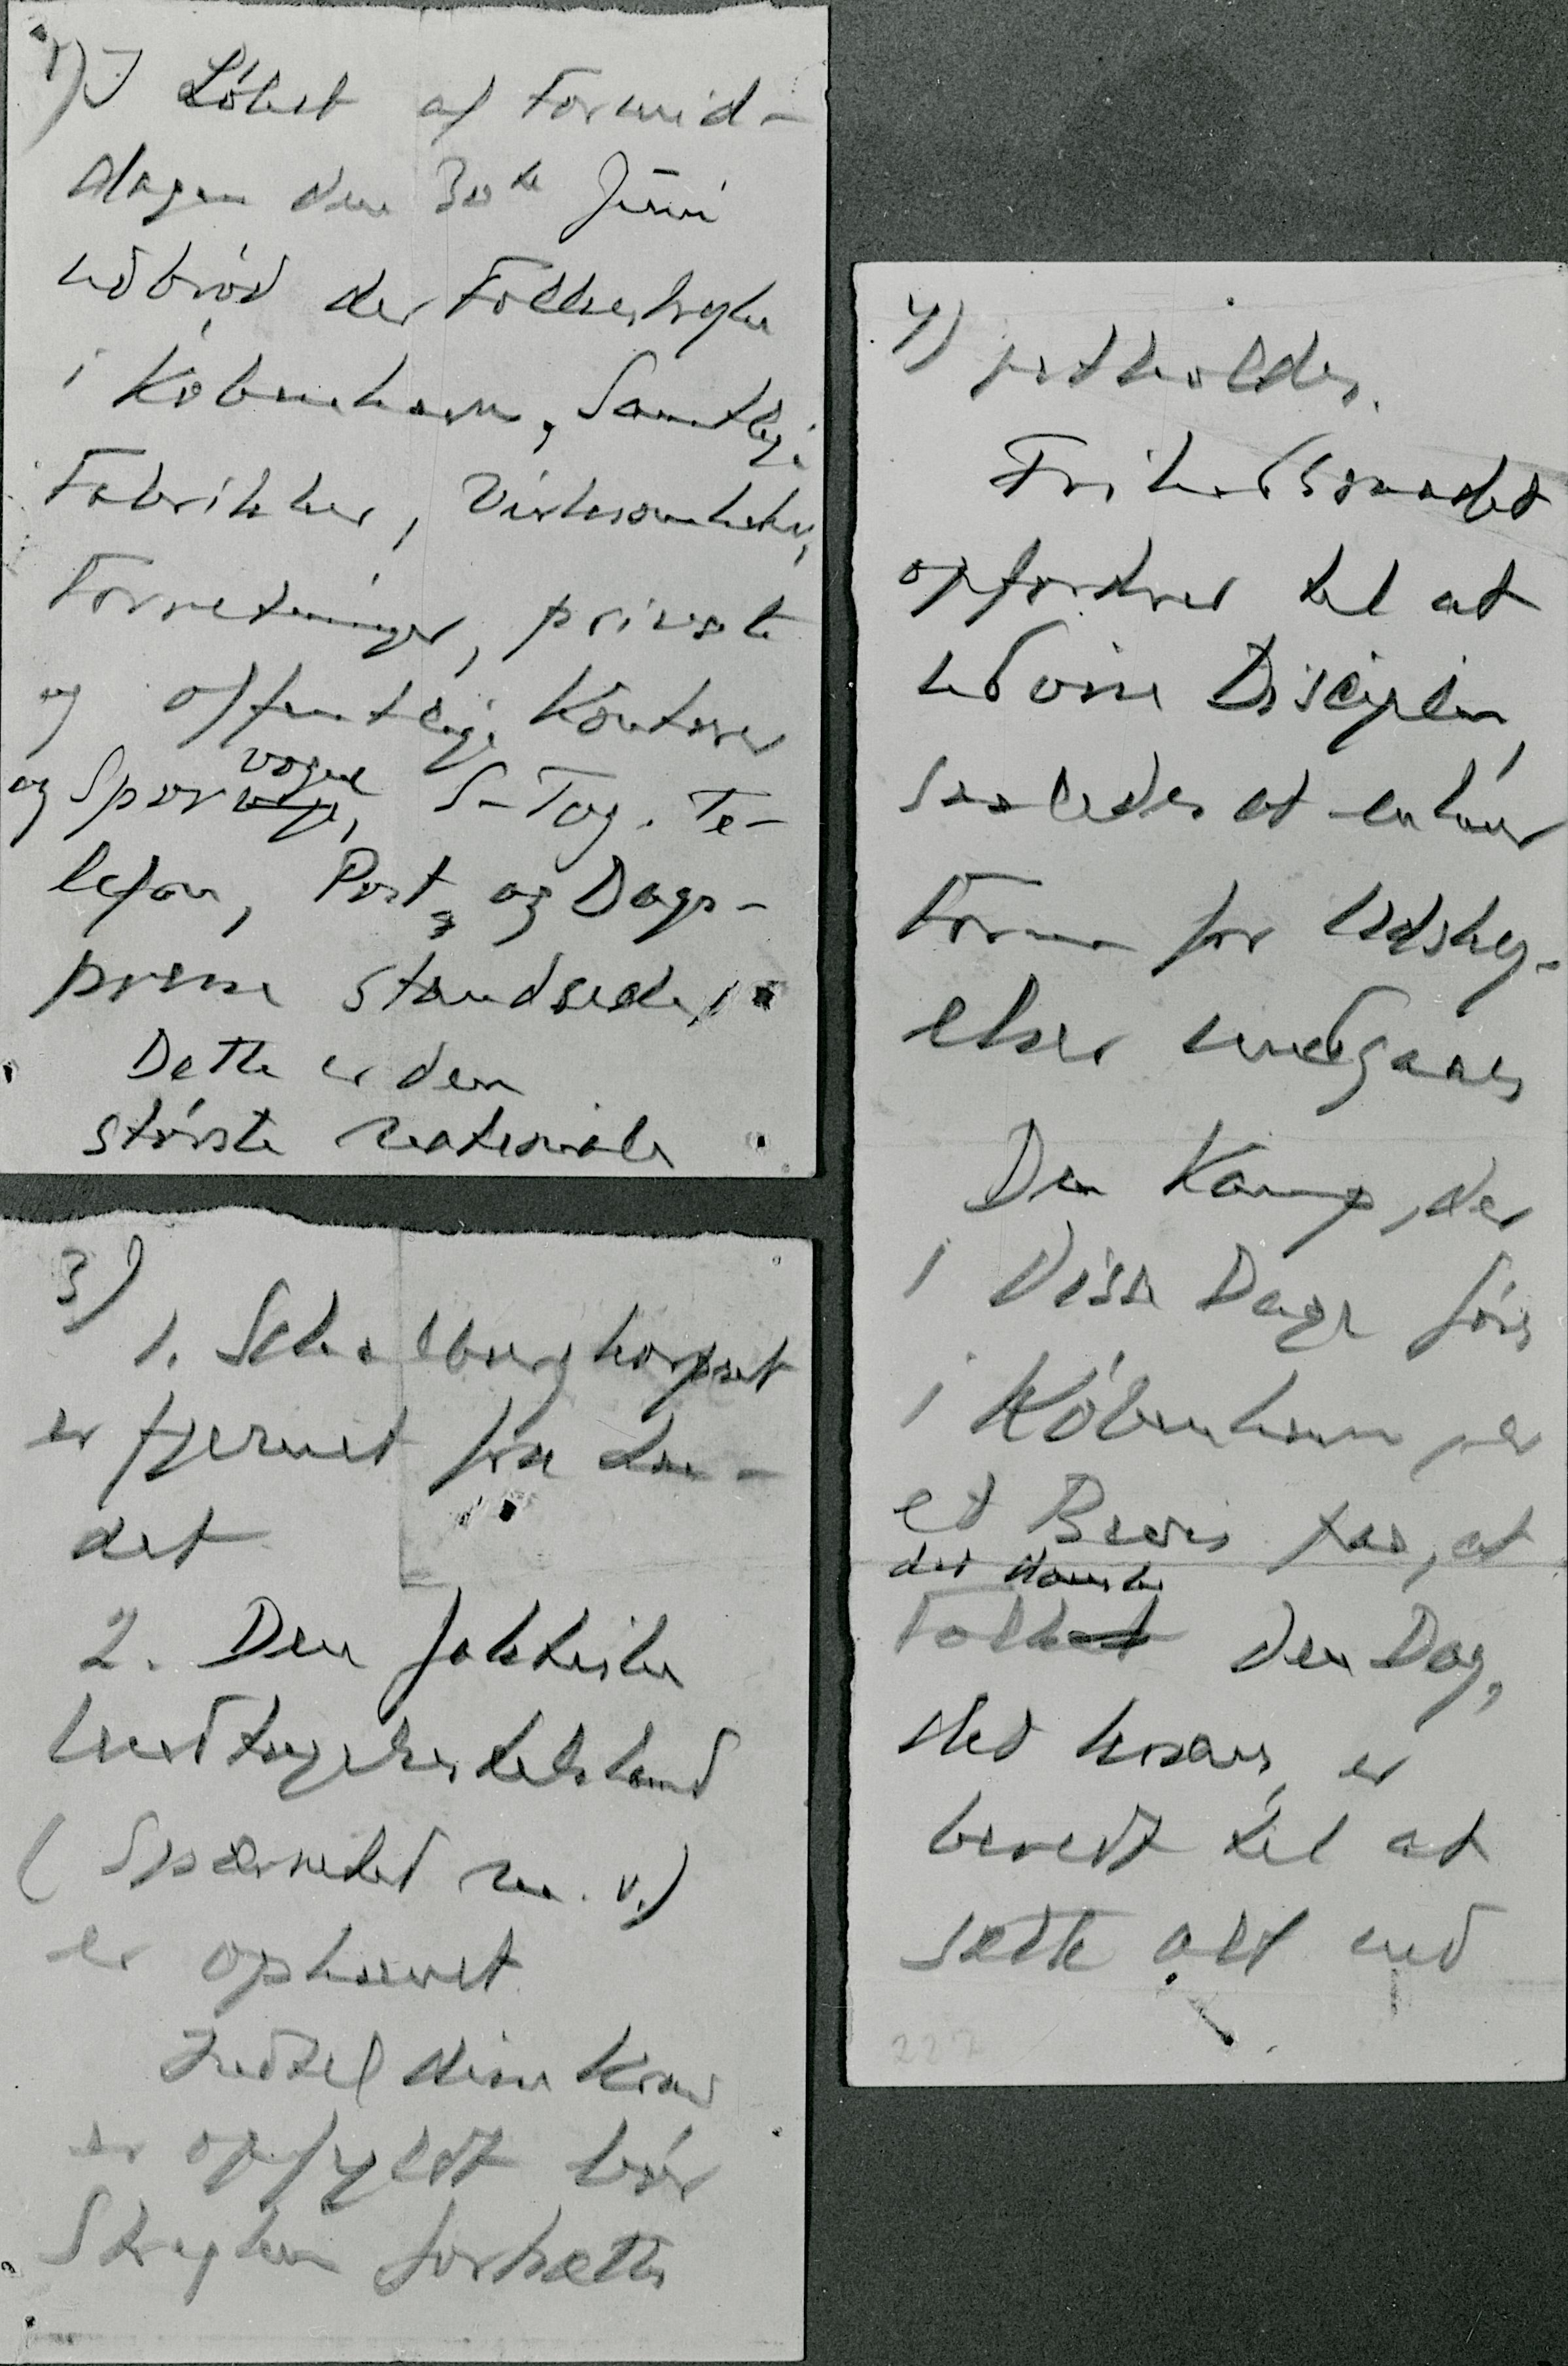 1) I Løbet af Formid-
dagen den 30te Juni
udbrød der Folkestrejke
i København, Samtlige
Fabrikker, Virksomheder,
Forretninger, private
og offentlige Kontorer
vogne
og Sporveje, S-Tog. Te-
lefon, Post, og Dags-
presse standsede,
Dette er den
største nationale
3)
1. Schalburgkorpset
er fjernet fra Lan-
det
2. Den faktiske
Undtagelsestilstand
(Spærretid m. v.)
er ophævet
Indtil disse Krav
er opfyldt bør
Strejken fortsætte
4) fastholdes.
Frihedsraadet
opfordrer til at
udvise Disciplin,
saaledes at enhver
Form for Udskej-
elser undgaaes
Den Kamp, der
i disse Dage føres
i København, er
et Bevis paa, at
det danske
Folket den Dag,
det kræves, er
beredt til at
sætte alt ind
222